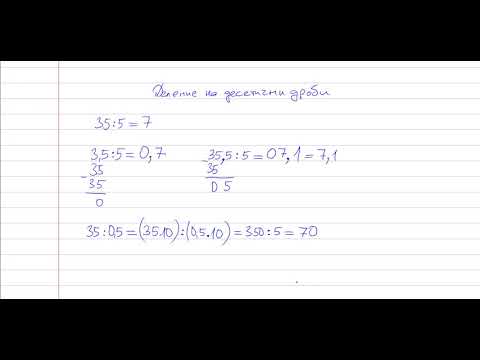 Деление на десетични дроби
35:5=7
3,5:5=0,7 35,5:5=07,1=7,1
35 35
-35 0 5
0
35:0,5=(35.10):(0,5.10)=350:5=70